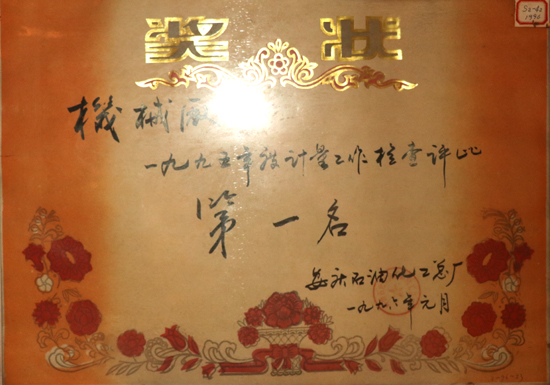 奖状
Sz-42
1996
機械厰
一九九五年级计量工作检查评比
第一名
安庆石油化工总厂
一九九六年元月